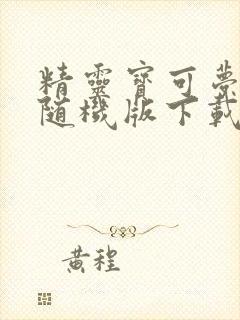 精靈寶可夢
随機版下載
黃程